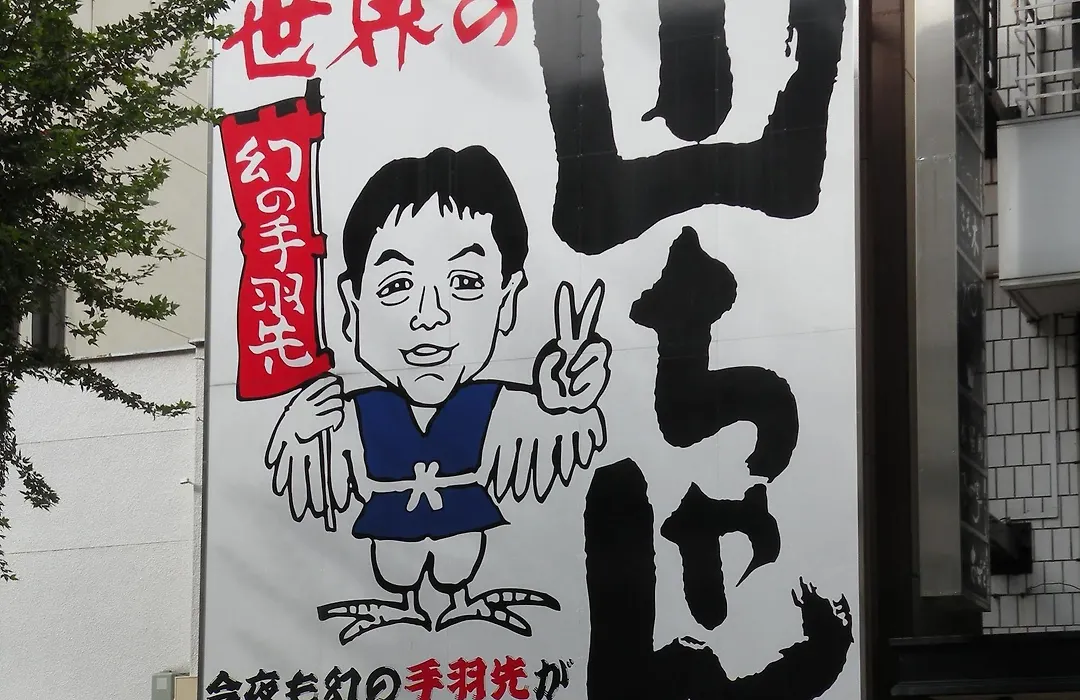 世界の
山ちゃん
幻の手羽先
今夜も幻の手羽先が